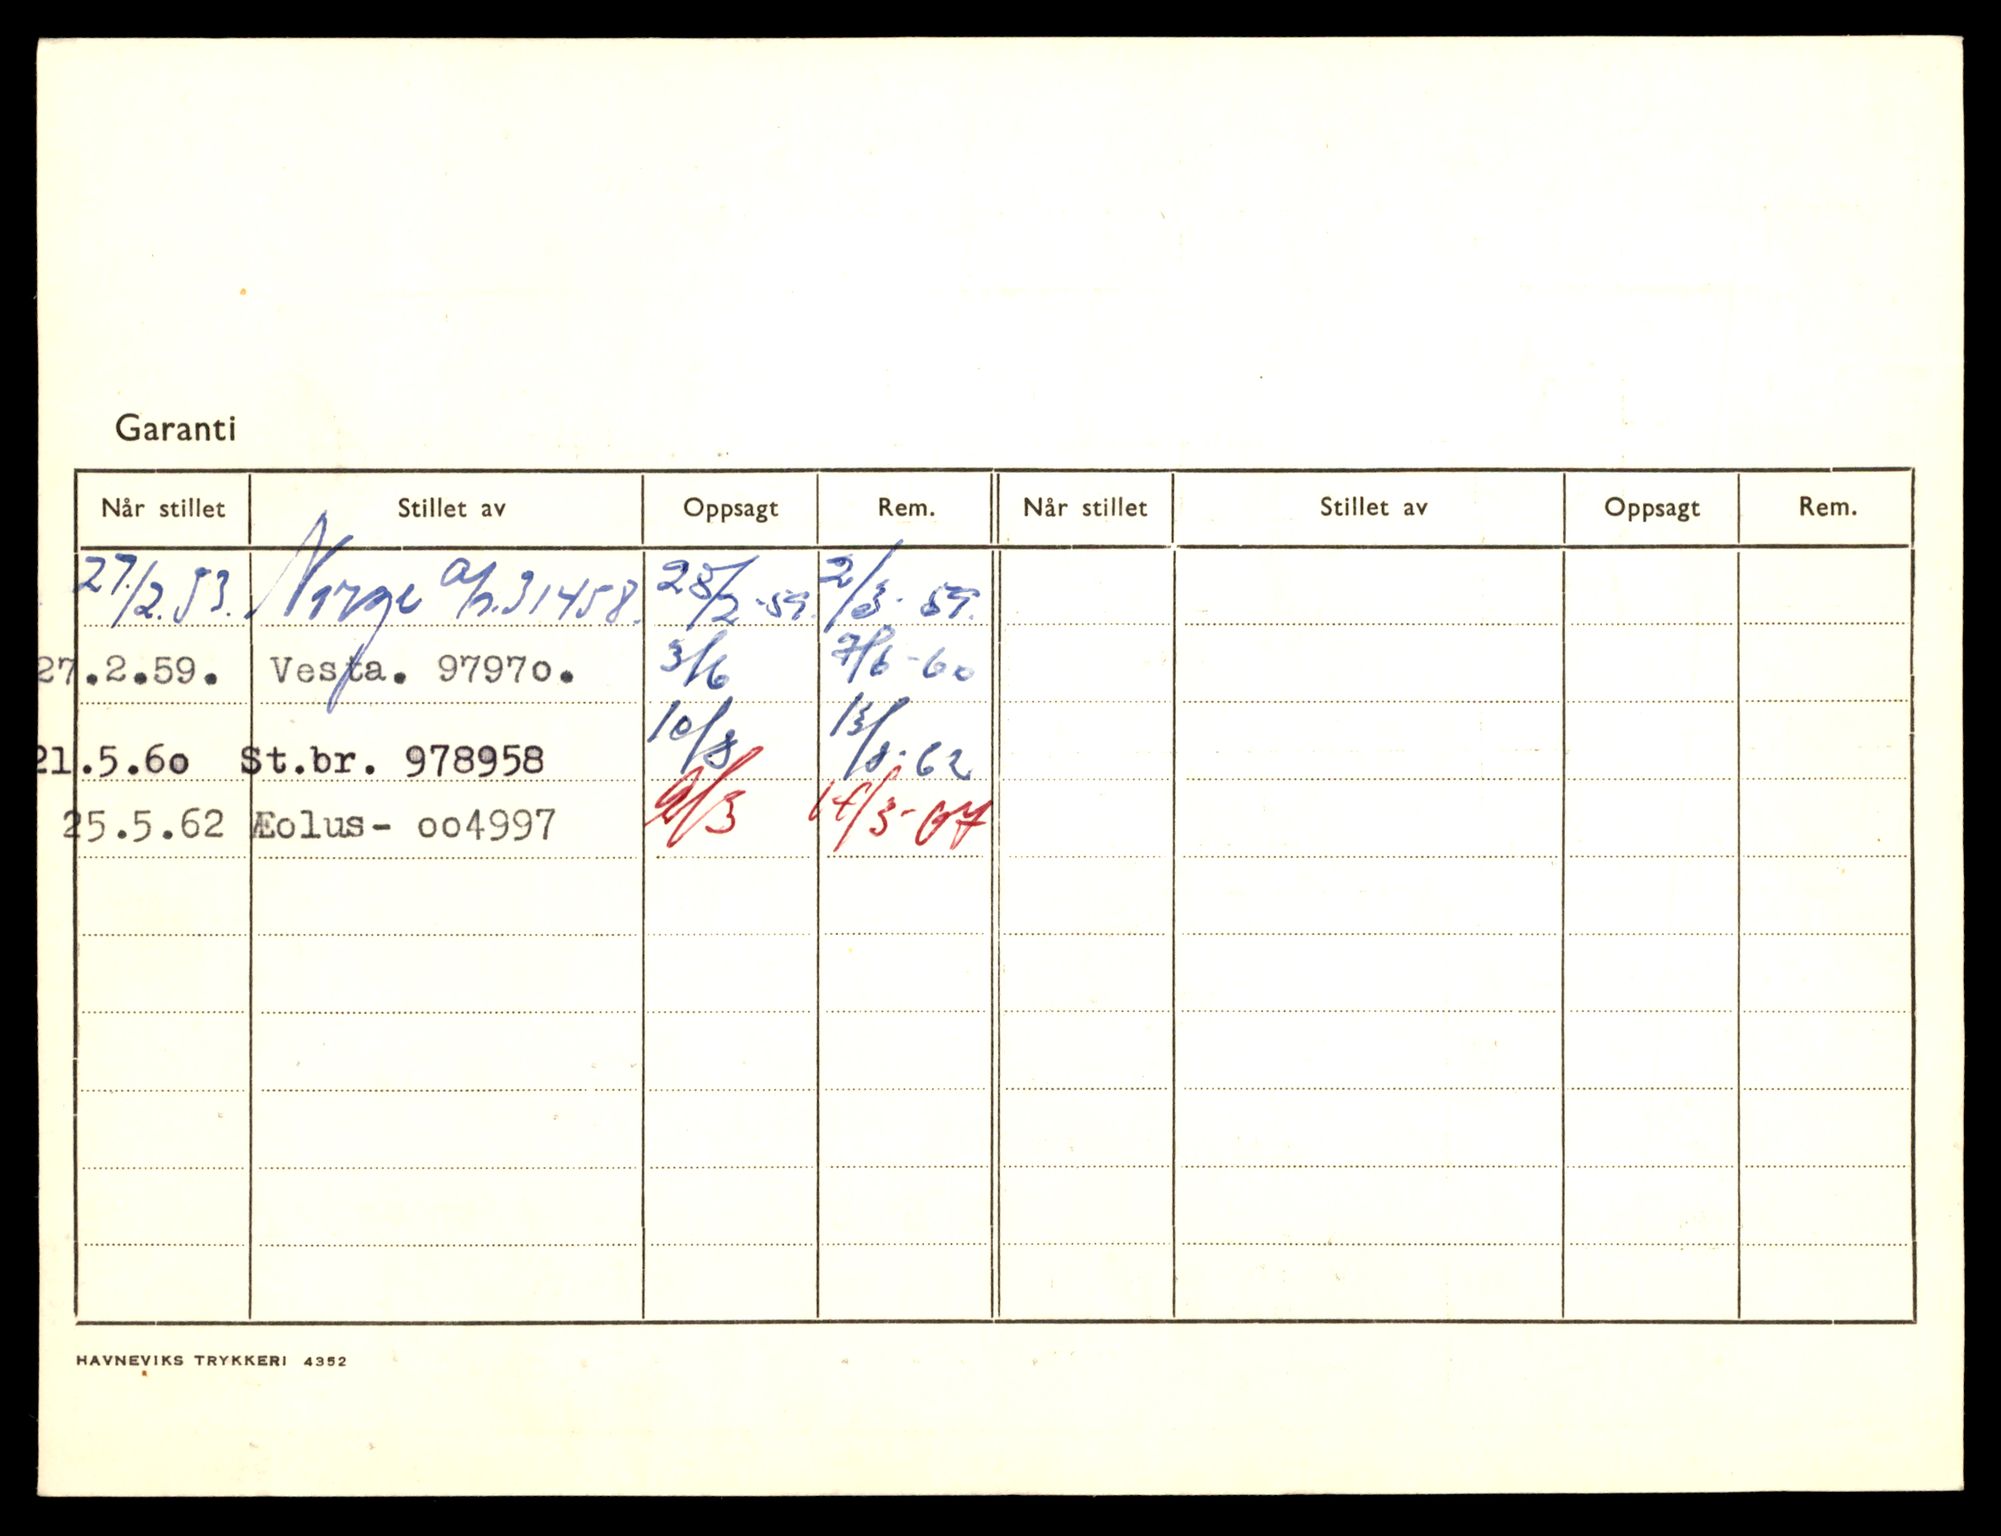 Garanti
Når stillet Stillet av Oppsagt Rem. Når stillet Stillet av Oppsagt Rem.
27/2.53. Norge a/h.31458. 28/2-59. 2/3-59.
27.2.59. Vesta. 97970. 3/6 7/6-60
21.5.60 St.br. 978958 10/8 13/8-62
25.5.62 Æolus- oo4997 9/3 14/3-67
HAVNEVIKS TRYKKERI 4352